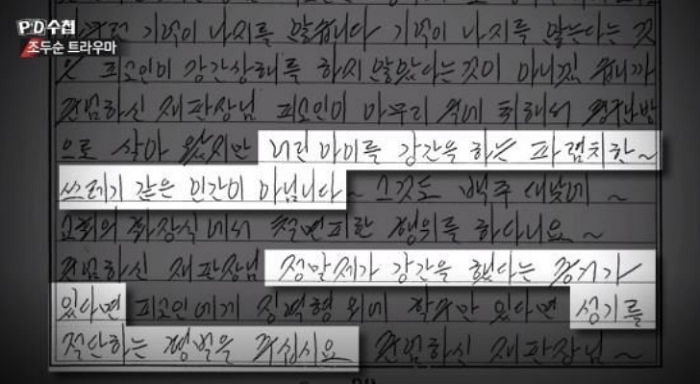 PD수첩
조두순 트라우마
기억이 나지를 않습니다 기억이 나지를 않는다는 것
은 피고인이 강간상해를 하지 않았다는것이 아니겠습니까
존경하신 재판장님 피고인이 아무리 술에 취해서
으로 살아 왔지만 어린 아이를 강간을 하는 파렴치한~
쓰레기 같은 인간이 아닙니다~ 그것도 백주 대낮에~
교회의 화장실에서 철면피한 행위를 하다니요~
존경하신 재판장님 정말제가 강간을 했다는 증거가
있다면 피고인에게 징역형 외에 있다면 성기를
절단하는 형벌을 주십시요 존경하신 재판장님~